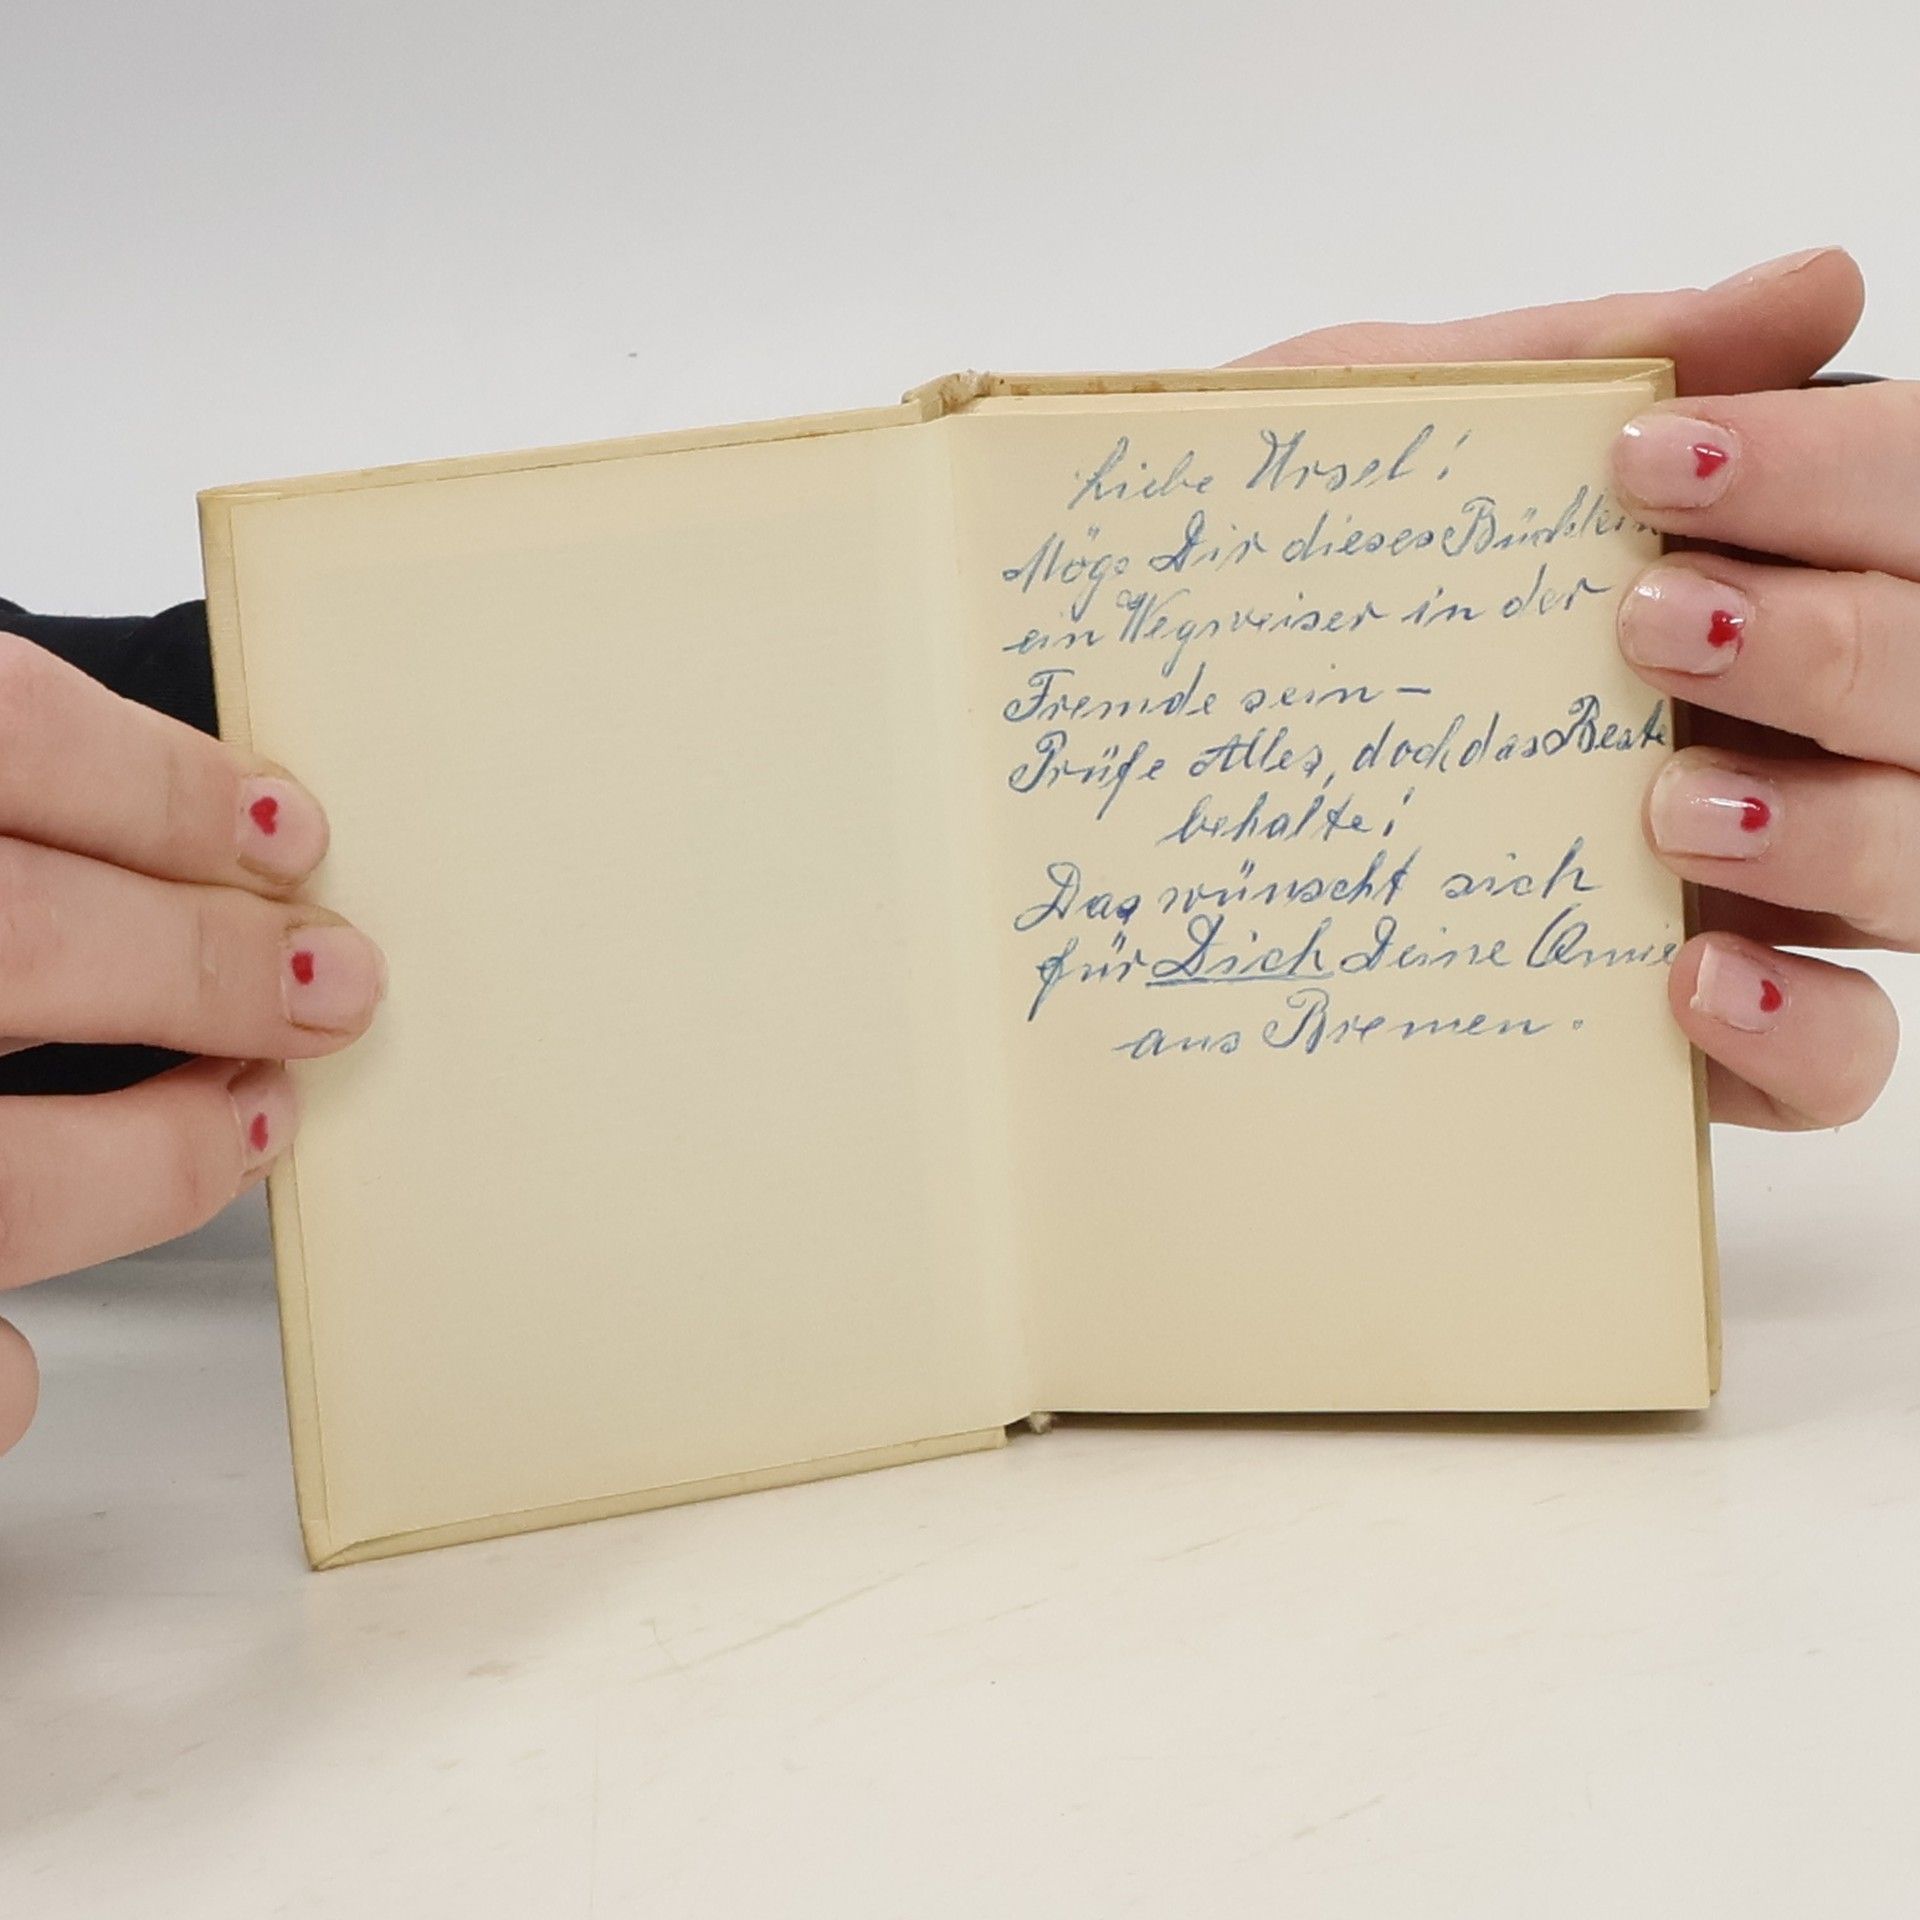 Liebe Ursel!
Möge Dir dieses Büchlein
ein Wegweiser in der
Fremde sein –
Prüfe Alles, doch das Beste
behalte!
Das wünscht sich
für Dich Deine
aus Bremen.